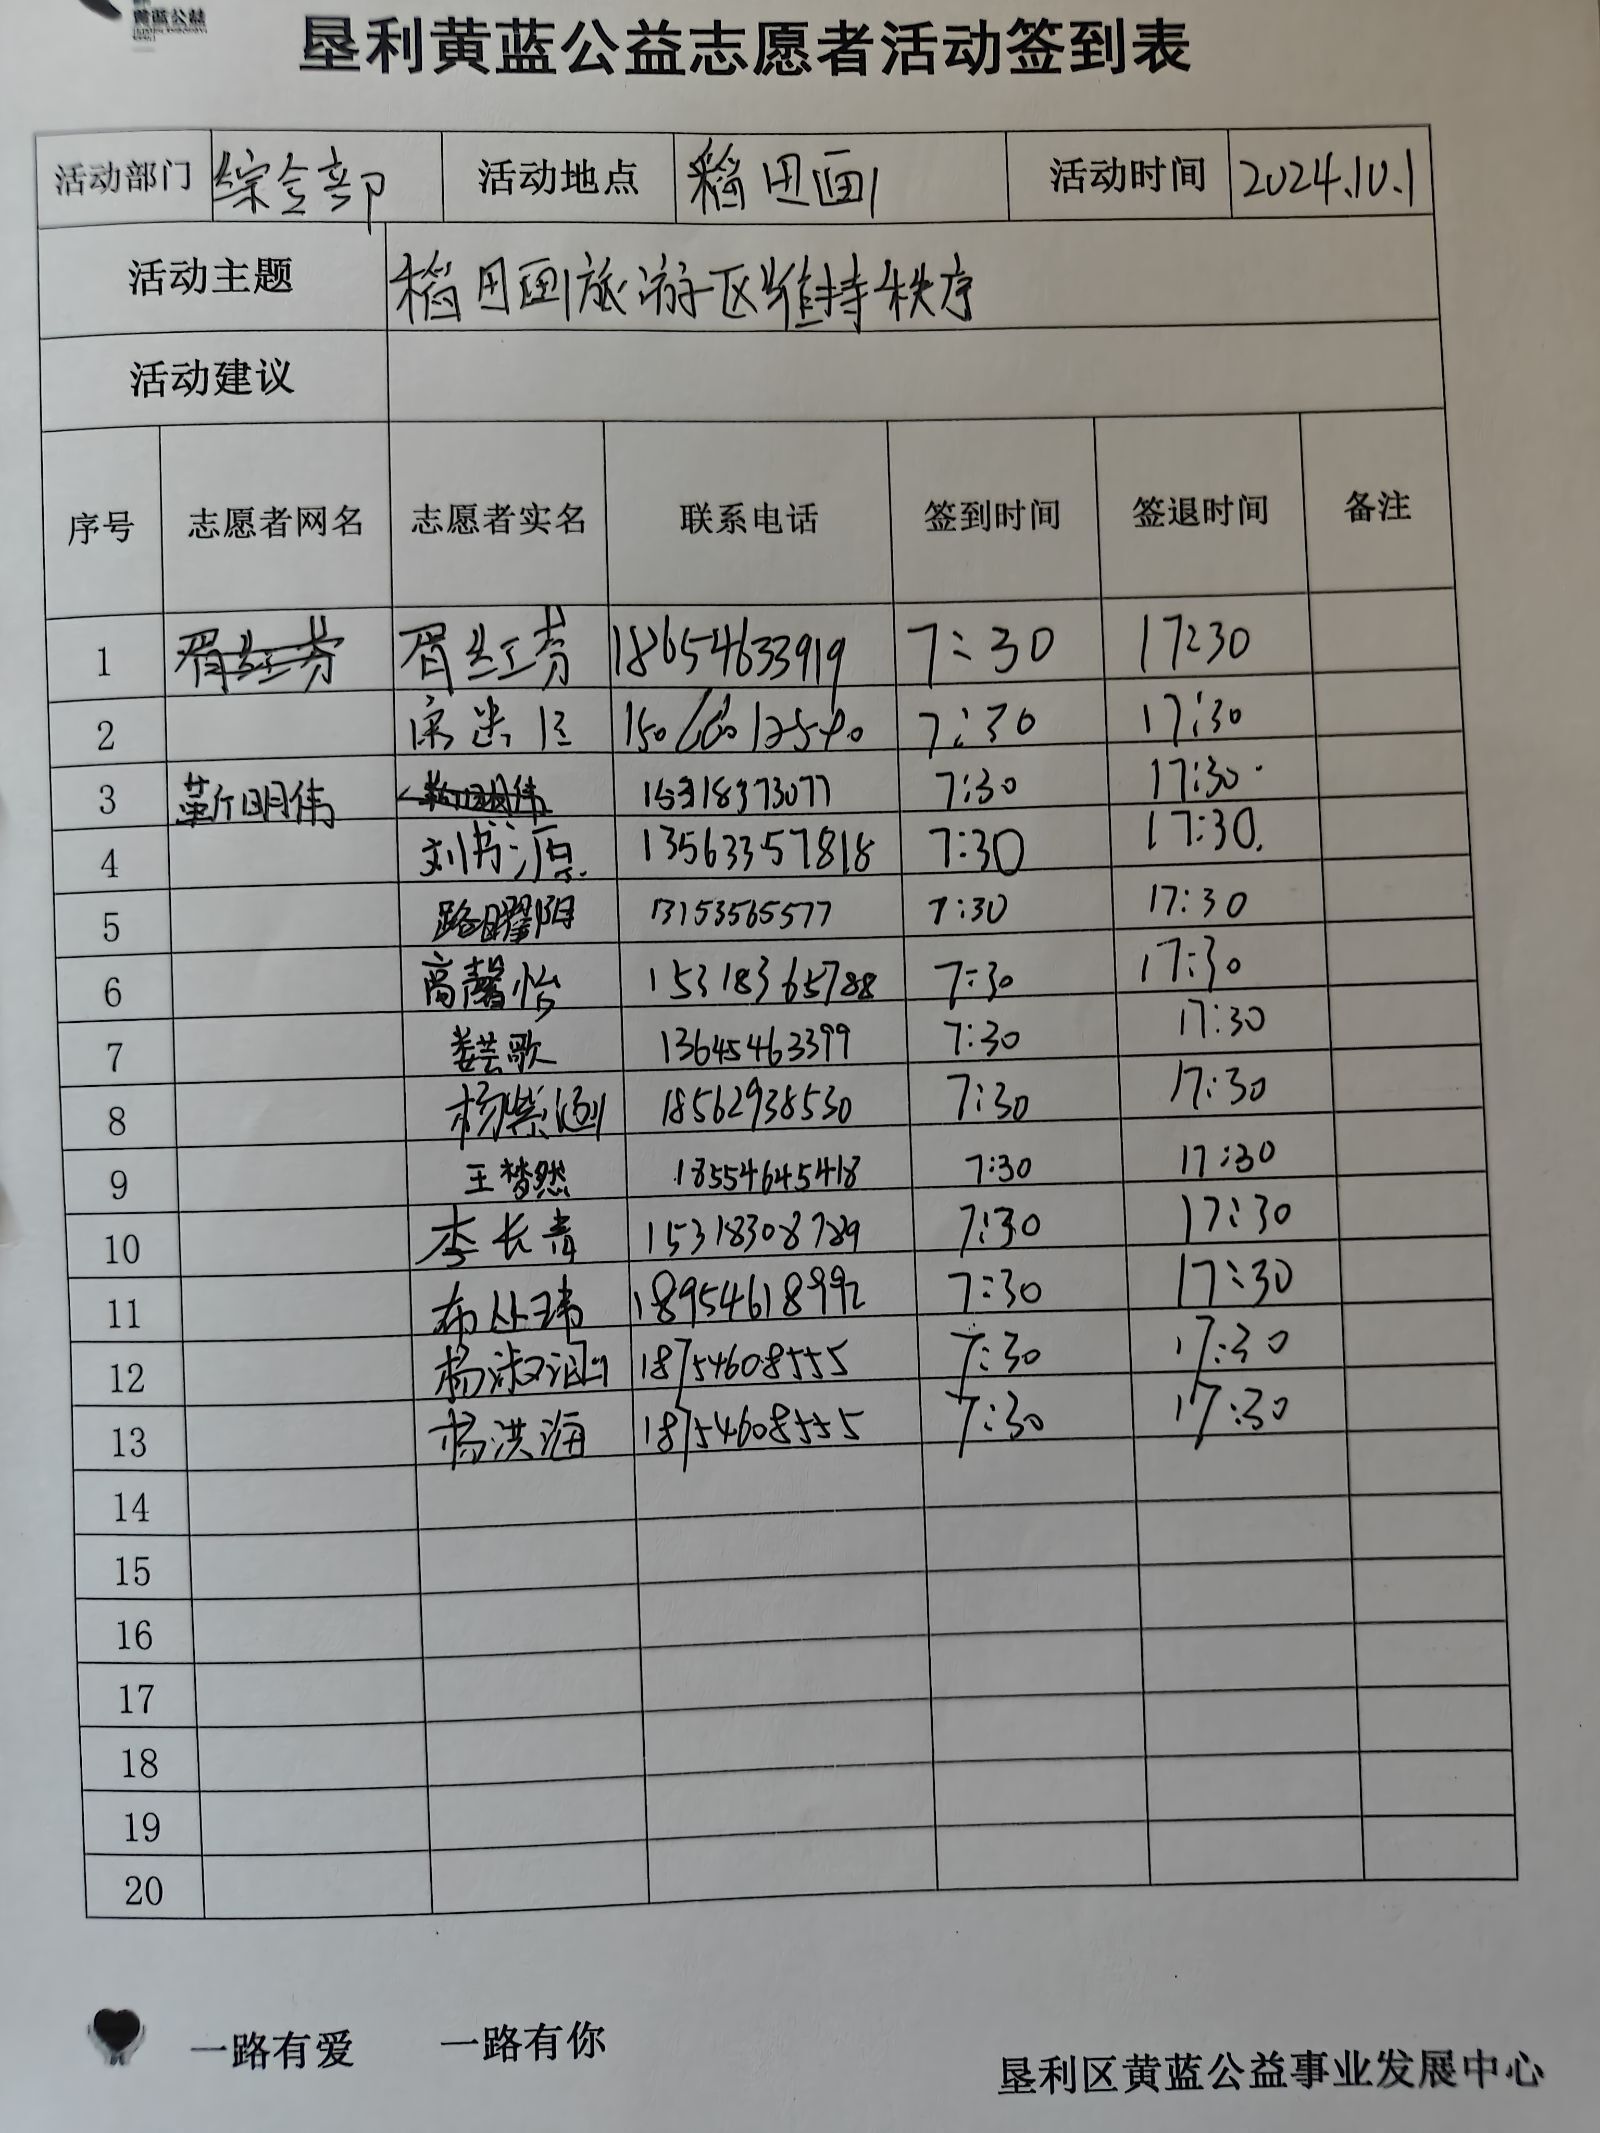 黄蓝公益
垦利黄蓝公益志愿者活动签到表
活动部门 综合部 活动地点 稻田画 活动时间 2024.10.1
活动主题 稻田画旅游区维持秩序
活动建议
序号 志愿者网名 志愿者实名 联系电话 签到时间 签退时间 备注
1 胥红芬 胥红芬 18654633919 7:30 17:30
2 7:30 17:30
3 靳明伟 靳明伟 15318373077 7:30 17:30
4 刘书源 13563357818 7:30 17:30
5 路曜阳 13153565577 7:30 17:30
6 高馨怡 15318365788 7:30 17:30
7 娄芸歌 13645463399 7:30 17:30
8 杨紫涵 18562938530 7:30 17:30
9 王梦然 18554645418 7:30 17:30
10 李长青 15318308789 7:30 17:30
11 18954618992 7:30 17:30
12 杨淑涵 18754608555 7:30 17:30
13 杨洪海 18754608555 7:30 17:30
14
15
16
17
18
19
20
一路有爱 一路有你
垦利区黄蓝公益事业发展中心